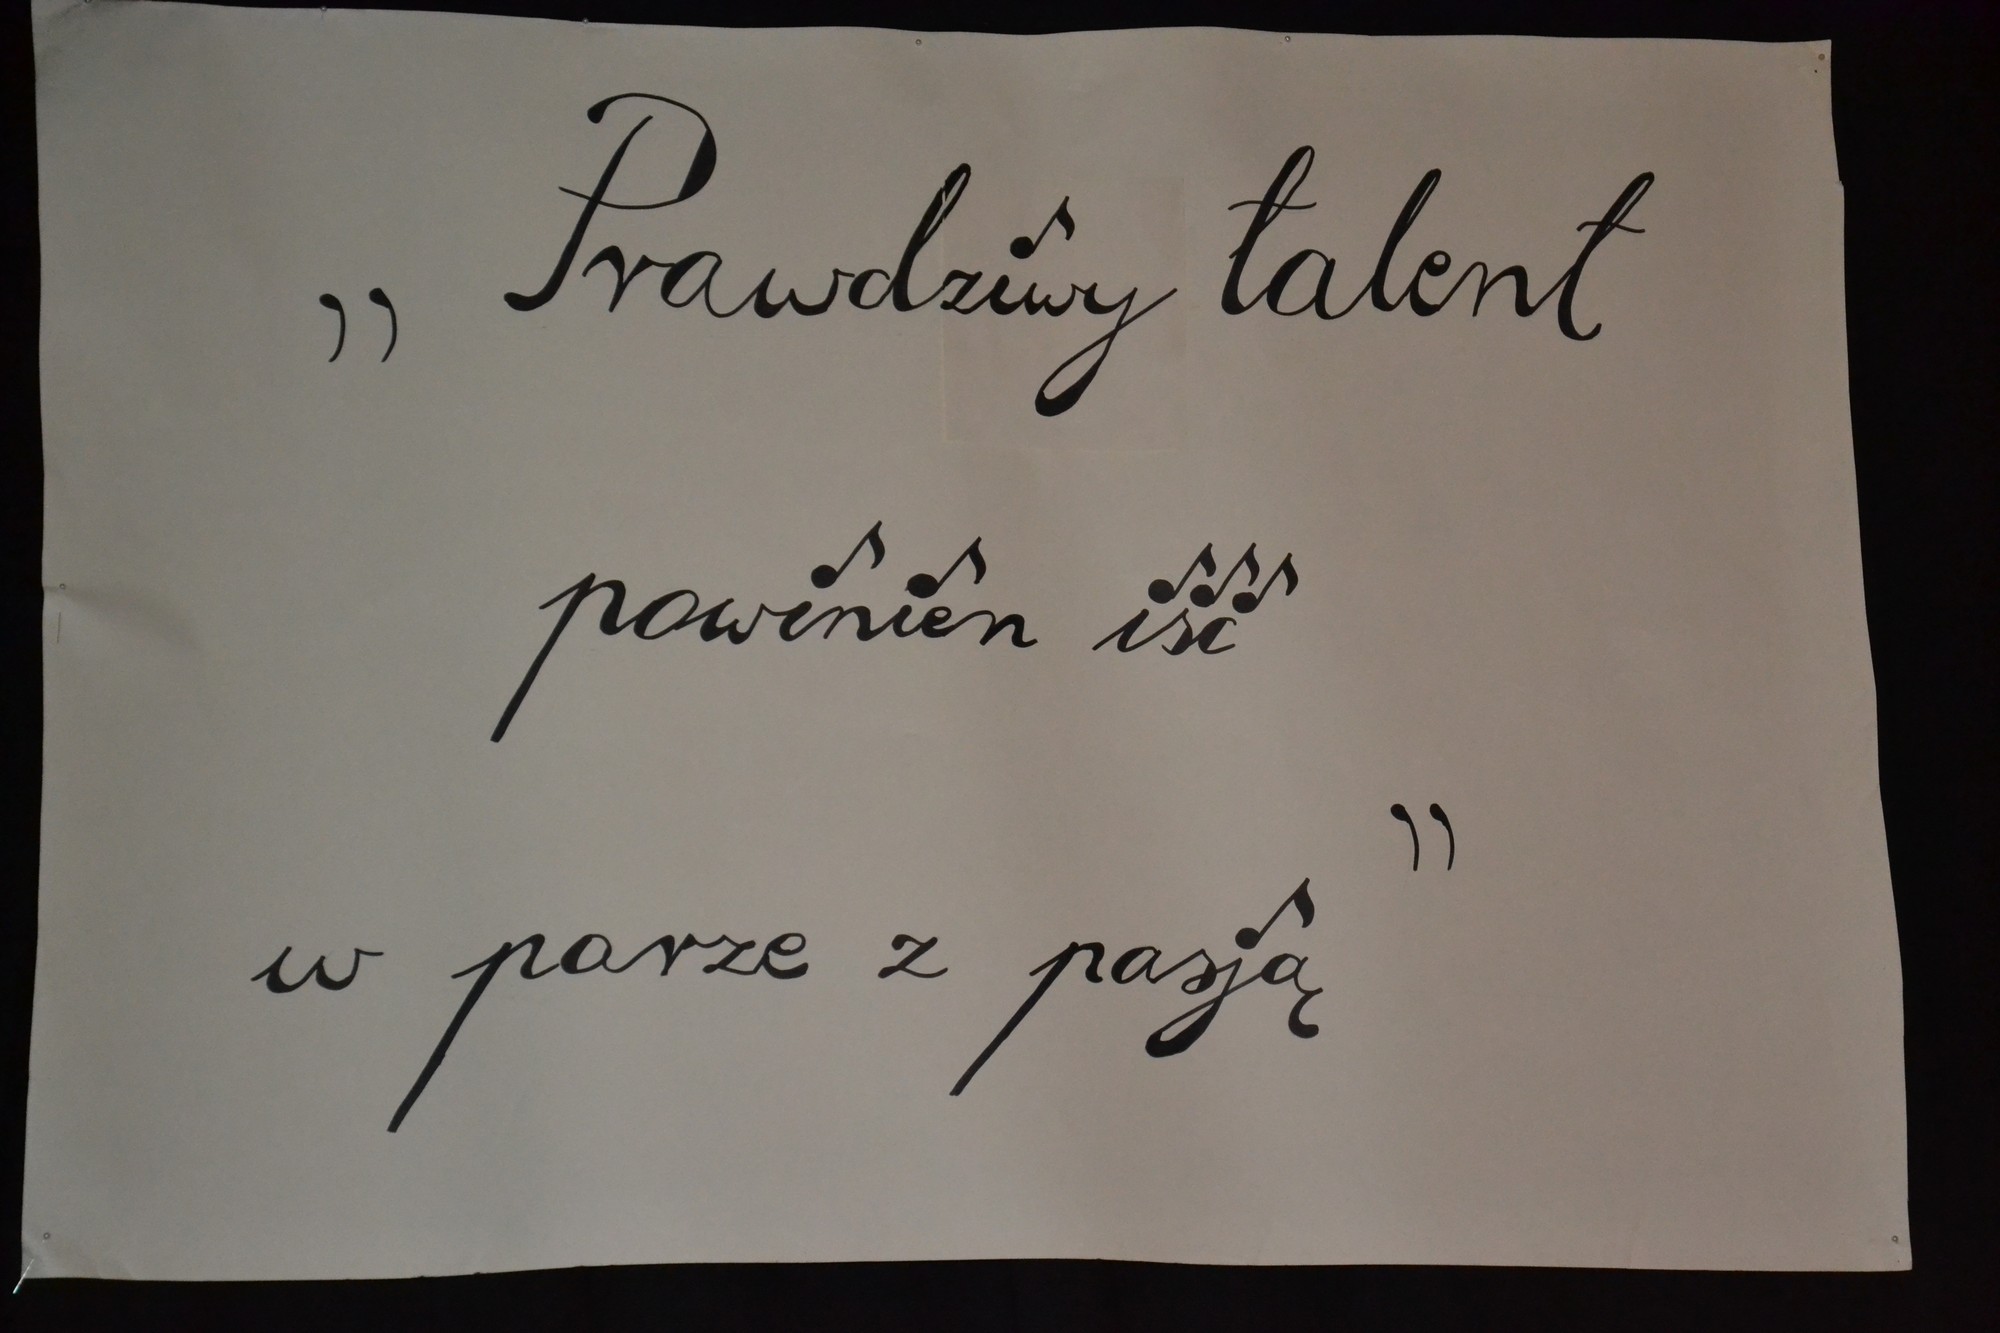 „Prawdziwy talent
powinien iść
w parze z pasją”